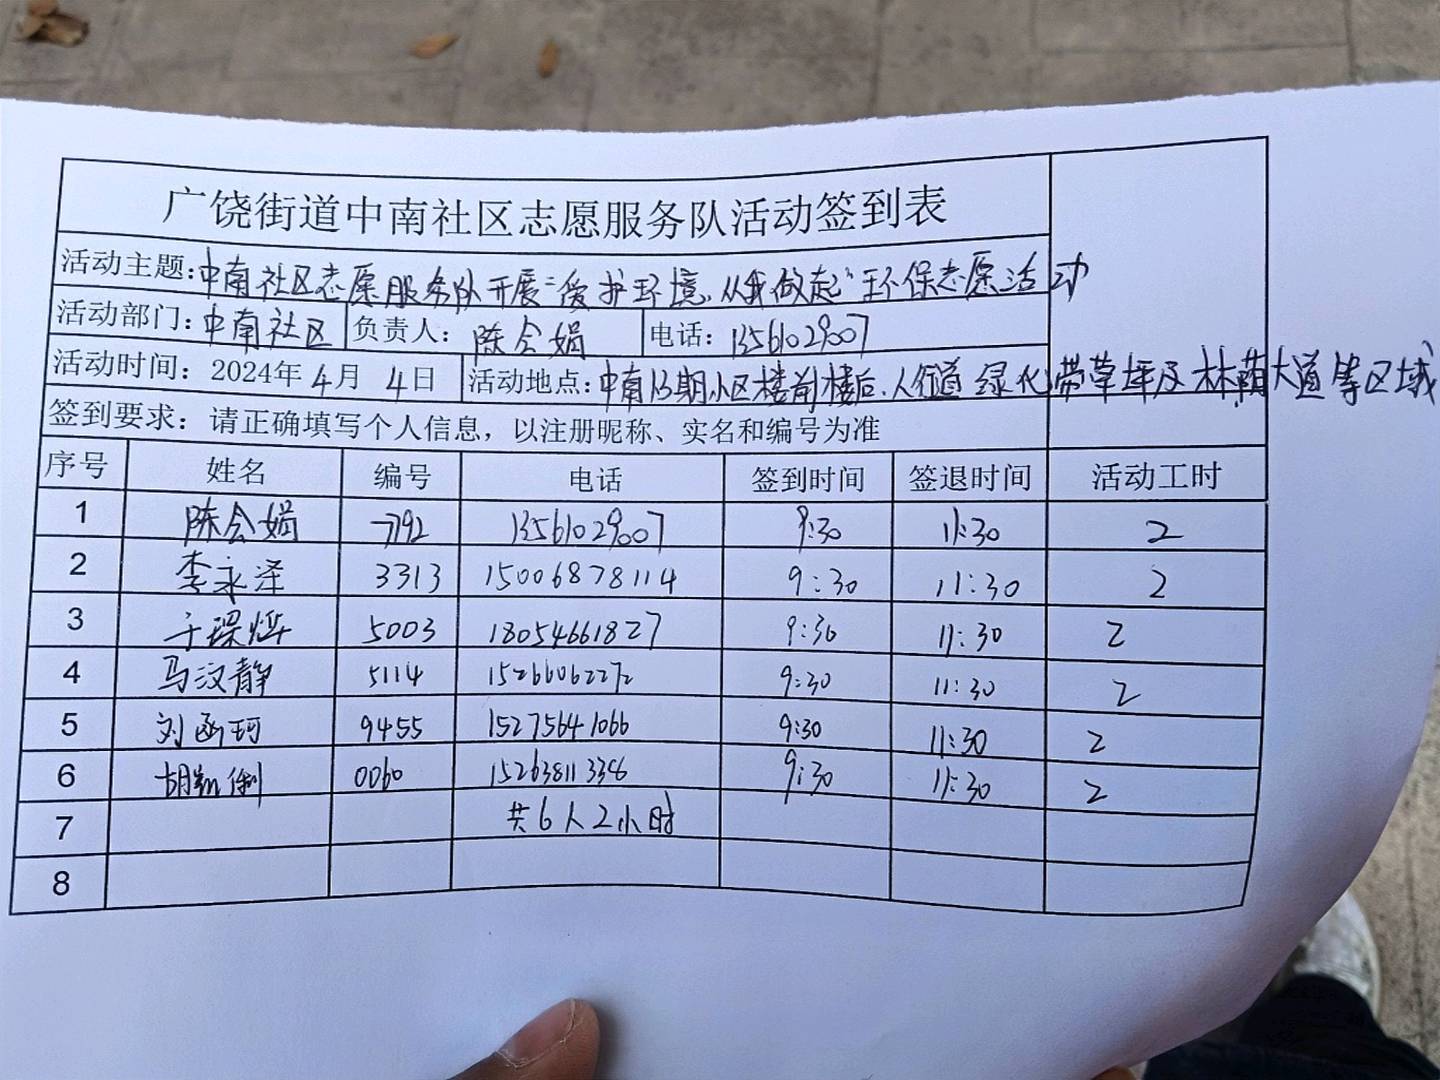 广饶街道中南社区志愿服务队活动签到表
活动主题:中南社区志愿服务队开展“爱护环境,从我做起”环保志愿活动
活动部门:中南社区 负责人: 陈会娟 电话:13561029007
活动时间:2024年4月4日 活动地点:中南 期小区楼前楼后、人行道 绿化带草坪及林荫大道等区域
签到要求:请正确填写个人信息,以注册昵称、实名和编号为准
序号 姓名 编号 电话 签到时间 签退时间 活动工时
1 陈会娟 7792 13561029007 9:30 11:30 2
2 李永泽 3313 15006878114 9:30 11:30 2
3 于琛烨 5003 18054661827 9:30 11:30 2
4 马汶静 5114 15266062272 9:30 11:30 2
5 刘函珂 9455 15275641066 9:30 11:30 2
6 胡 俐 0060 9:30 11:30 2
7 共6人2小时
8